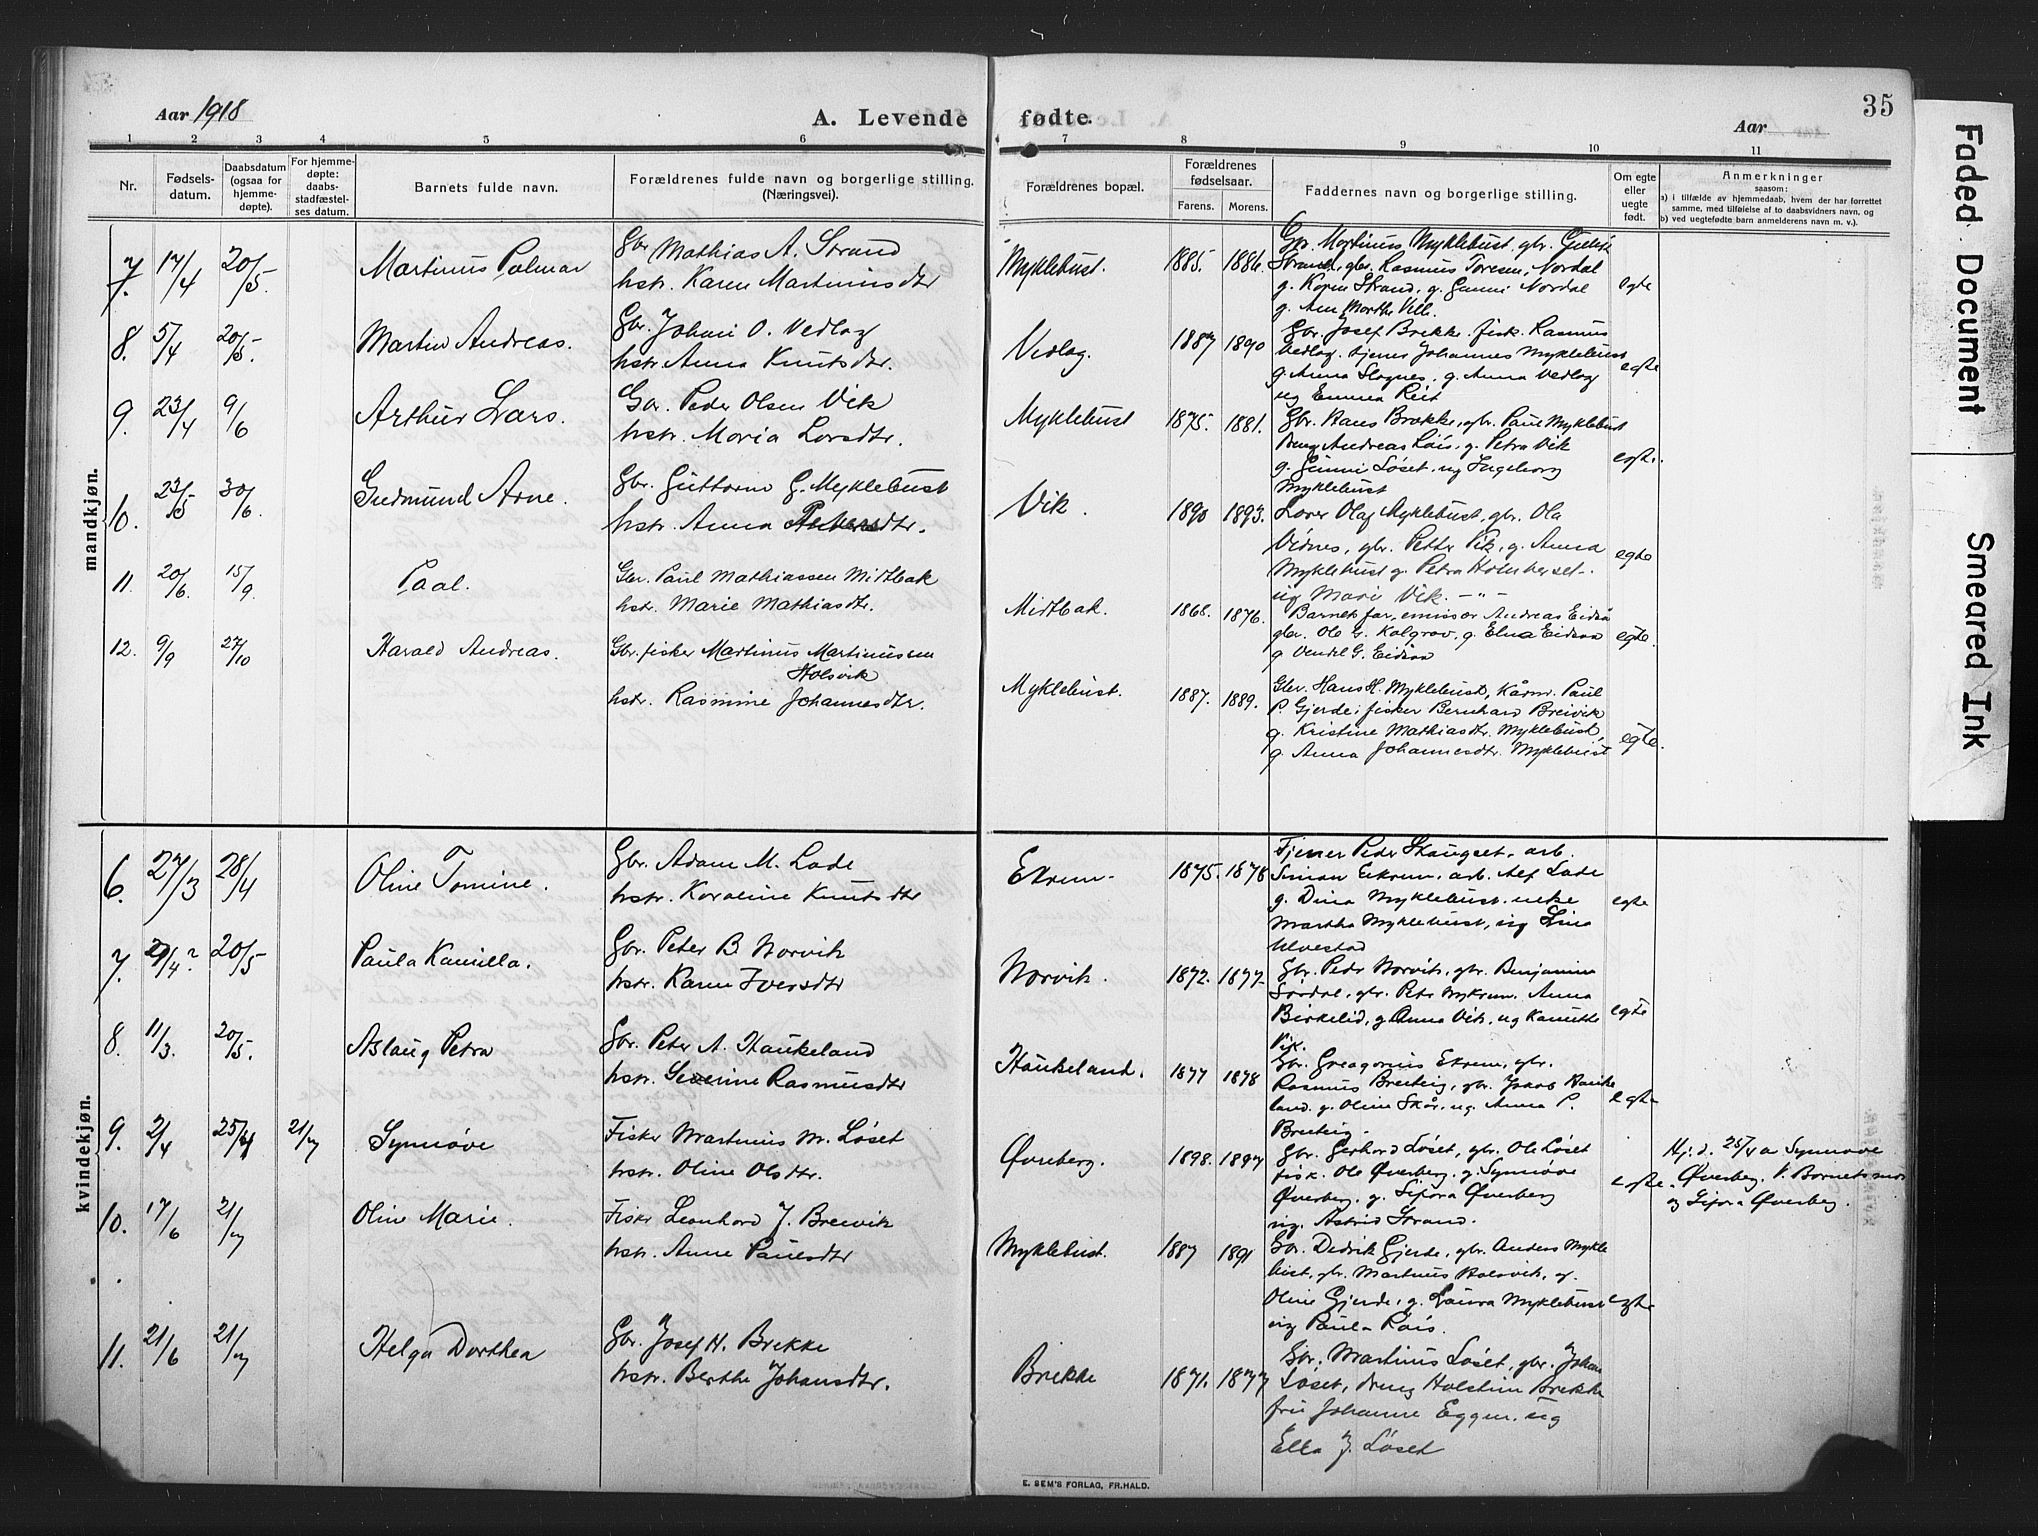 Aar 1918
A. Levende
fødte.
Aar
35
1 2 3 4 5 6 7 8 9 10 11
Nr.
Fødsels-
datum.
Daabsdatum
(ogsaa for
hjemme-
døpte).
For hjemme-
døpte:
daabs-
stadfæstel-
ses datum.
Barnets fulde navn.
Forældrenes fulde navn og borgerlige stilling.
(Næringsvei).
Forældrenes bopæl.
Forældrenes
fødselsaar.
Farens. Morens.
Faddernes navn og borgerlige stilling.
Om egte
eller
uegte
født.
Anmerkninger
saasom:
a) i tilfælde av hjemmedaab, hvem der har forrettet
samme, med tilføielse af to daabsvidners navn, og
b) ved uegtefødte barn anmelderens navn m. v.).
mandkjøn.
7. 17/4 20/5. Martinus Palmar
Gbr Mathias A. Strand
hstr. Karen Martinusdtr
Myklebust. 1885. 1886.
Gbr. Martinus Myklebust, gbr.
Strand, gbr. Rasmus Toresen, Nordal
g. Karen Strand, g. Gunni Nordal
g. Ane Marthe
egte
8. 5/4 20/5. Martin Andreas.
Gbr. Johan O. Vedlag
hstr. Anna Knutsdtr.
Vedlag. 1887 1890
Gbr. Josef Brekke. fisk. Rasmus
Vedlag. tjener Johannes Myklebust
g. Anna Slagnes, g. Anna Vedlag
ug Emma
egte
9. 23/4 9/6 Arthur Lars.
Gbr. Peder Olsen Vik
hstr. Maria Larsdtr.
Myklebust 1875. 1881.
Gbr. Hans Brekke, gbr. Paul Myklebust
dreng Andreas g. Petra Vik
g. Gunni Løset, ug Ingeborg
Myklebust
egte.
10. 23/5 30/6. Gudmund Arne.
Gbr. Guttorm G. Myklebust
hstr. Anna Petersdtr.
Vik. 1890 1893.
Lærer Olaf Myklebust, gbr. Ola
Vidnes, gbr. Petter Vik, g. Anna
Myklebust g. Petra
ug Mari Vik. —"—
egte
11. 20/6. 15/9. Paal.
Gbr. Paul Mathiassen Midtbak
hstr. Marie Mathiasdtr.
Midtbak. 1868. 1876.
Barnets far, emissær Andreas Eidsaa
gbr. Ole G. Kalgrav, g. Elna Eidsaa
g Vendel G. Eidsaa
egte.
12. 9/9 27/10 Harald Andreas.
Gbr. fisker Martinus Martinussen
Holsvik
hstr. Rasmine Johannesdtr.
Myklebust. 1887. 1889.
Gbr. Hans H. Myklebust, Kårm. Paul
P. Gjerde, fisker Bernhard Breivik
g. Kristine Mathiasdtr. Myklebust,
g. Anna Johannesdtr. Myklebust
egte.
kvindekjøn.
6. 27/3 28/4 Oline Tomine.
Gbr. Adam M. Lade
hstr. Karoline Knutsdtr
Ekrem. 1875. 1878
Tjener Peder Skaugset, arb.
Simon Eekrem, arb. Alf Lade
g. Dina Myklebust. enke
Martha Myklebust, ug Lina
Ulvestad
egte
7. 21/4? 20/5 Paula Kamilla.
Gbr. Peter B Norvik
hstr. Karen Iversdtr
Norvik. 1872. 1877.
Gbr. Peder Norvik, gbr. Benjamin
Sørdal, gbr. Anna
Birkelid, g Anna Vik, ug
Vik.
egte
8. 11/3. 20/5. Aslaug Petra
Gbr. Peter A. Haukeland
hstr. Severine Rasmusdtr
Haukeland. 1877 1878
Gbr. Greagorius Ekrem, gbr.
Rasmus Breiteig, gbr. Jaaob Hauke
land, g. Oline Skår, ug. Anna P.
Breiteig.
egte
9. 2/4 25/4 21/7 Synnøve
Fisker Martinus M. Løset
hstr. Oline Olsdtr.
Øvreberg. 1898. 1897
Gbr. Gerhard Løset, gbr. Ole Løset
fisk. Ole Øvreberg, g. Synnøve
Øverberg, g. Sifora Øverberg
ug. Astrid Strand.
egte.
Hj. d. 25/4 a Synnøve
Øverberg. V. Barnets mor
og Sifora Øverberg.
10. 17/6 21/7 Oline Marie.
Fisker Leonhard J. Breivik
hstr. Anne Paulsdtr
Myklebust. 1887 1891
Gbr. Didrik Gjerde, gbr. Anders Mykle
bust, gbr. Martinus Holsvik, g.
Oline Gjerde, g. Laura Myklebust
ug Paula
egte
11. 21/6 21/7 Helga Dorthea
Gbr. Josef H. Brekke
hstr. Berthe Johansdtr.
Brekke 1871. 1877
Gbr. Martinus Løset, gbr. Johan
Løset, dreng Holstein Brekke
fru Johanne Eggen. ug
Ella J. Løset
E. SEM'S FORLAG, FR.HALD.
Faded Document
Smeared Ink